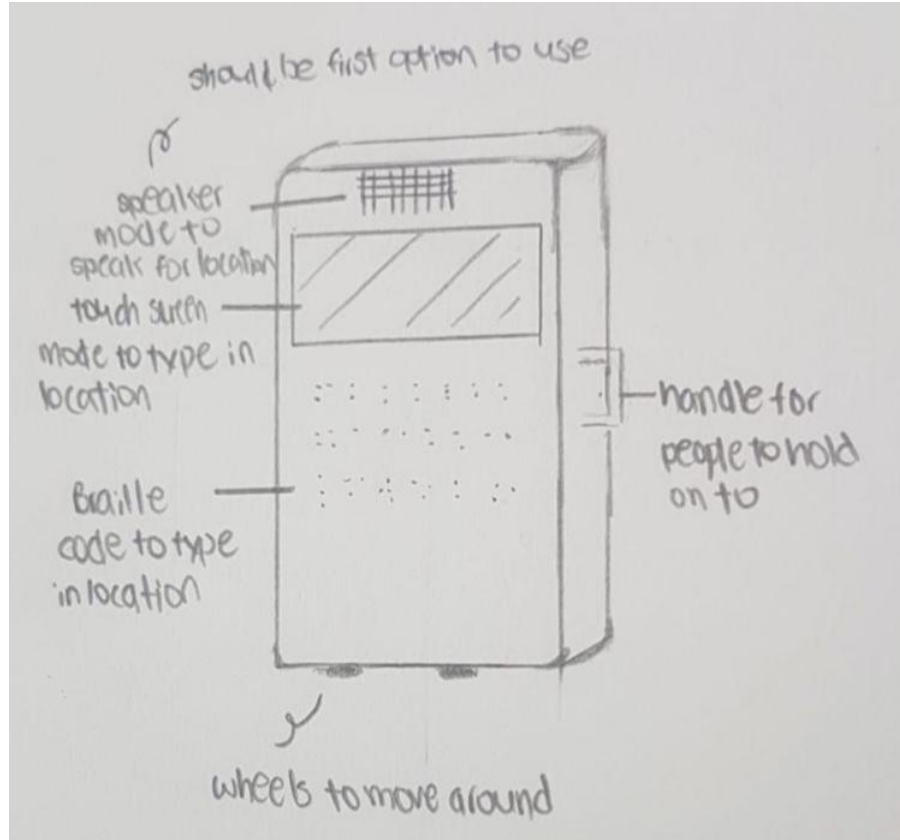 should be first option to use
speaker
mode to
speak for location
touch screen
mode to type in
location
Braille
code to type
in location
handle for
people to hold
on to
wheels to move around